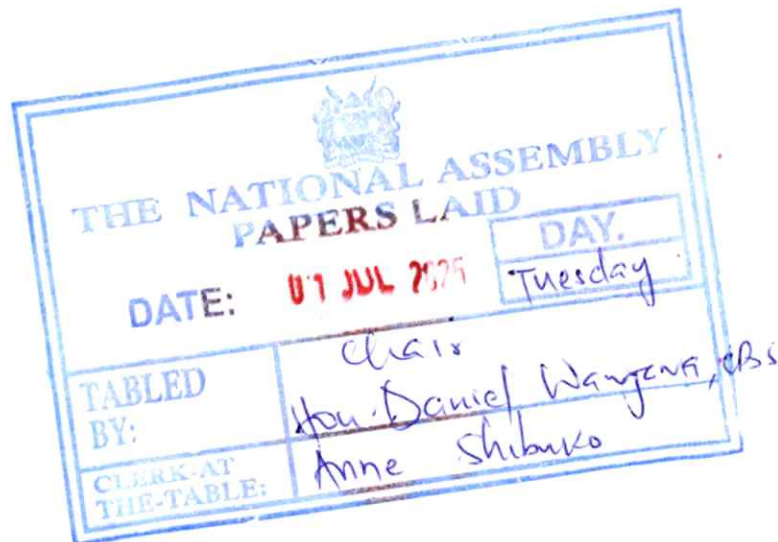 THE NATIONAL ASSEMBLY
PAPERS LAID
DATE: 01 JUL 2025
DAY.
Tuesday
TABLED BY:
Chair
Hon. Daniel Wanyama, CBS
CLERK-AT THE-TABLE:
Anne Shibuko